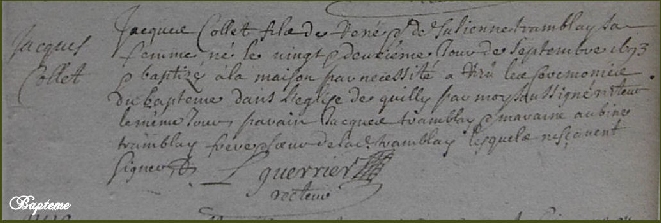 Jacques
Collet
Jacque Collet fils de René & de Julienne tramblay sa
femme né le vingt deuxième Jour de Septembre 1673
& baptizé à la maison par necessité a reçu les ceremonies
du bapteme dans l'eglise de quilly par moy soussigné recteur
le meme Jour parain Jacque tramblay & maraine aubine
tramblay frere & soeur de lad. tramblay lesquels ne sçavent
signer
guerrier
recteur
Bapteme